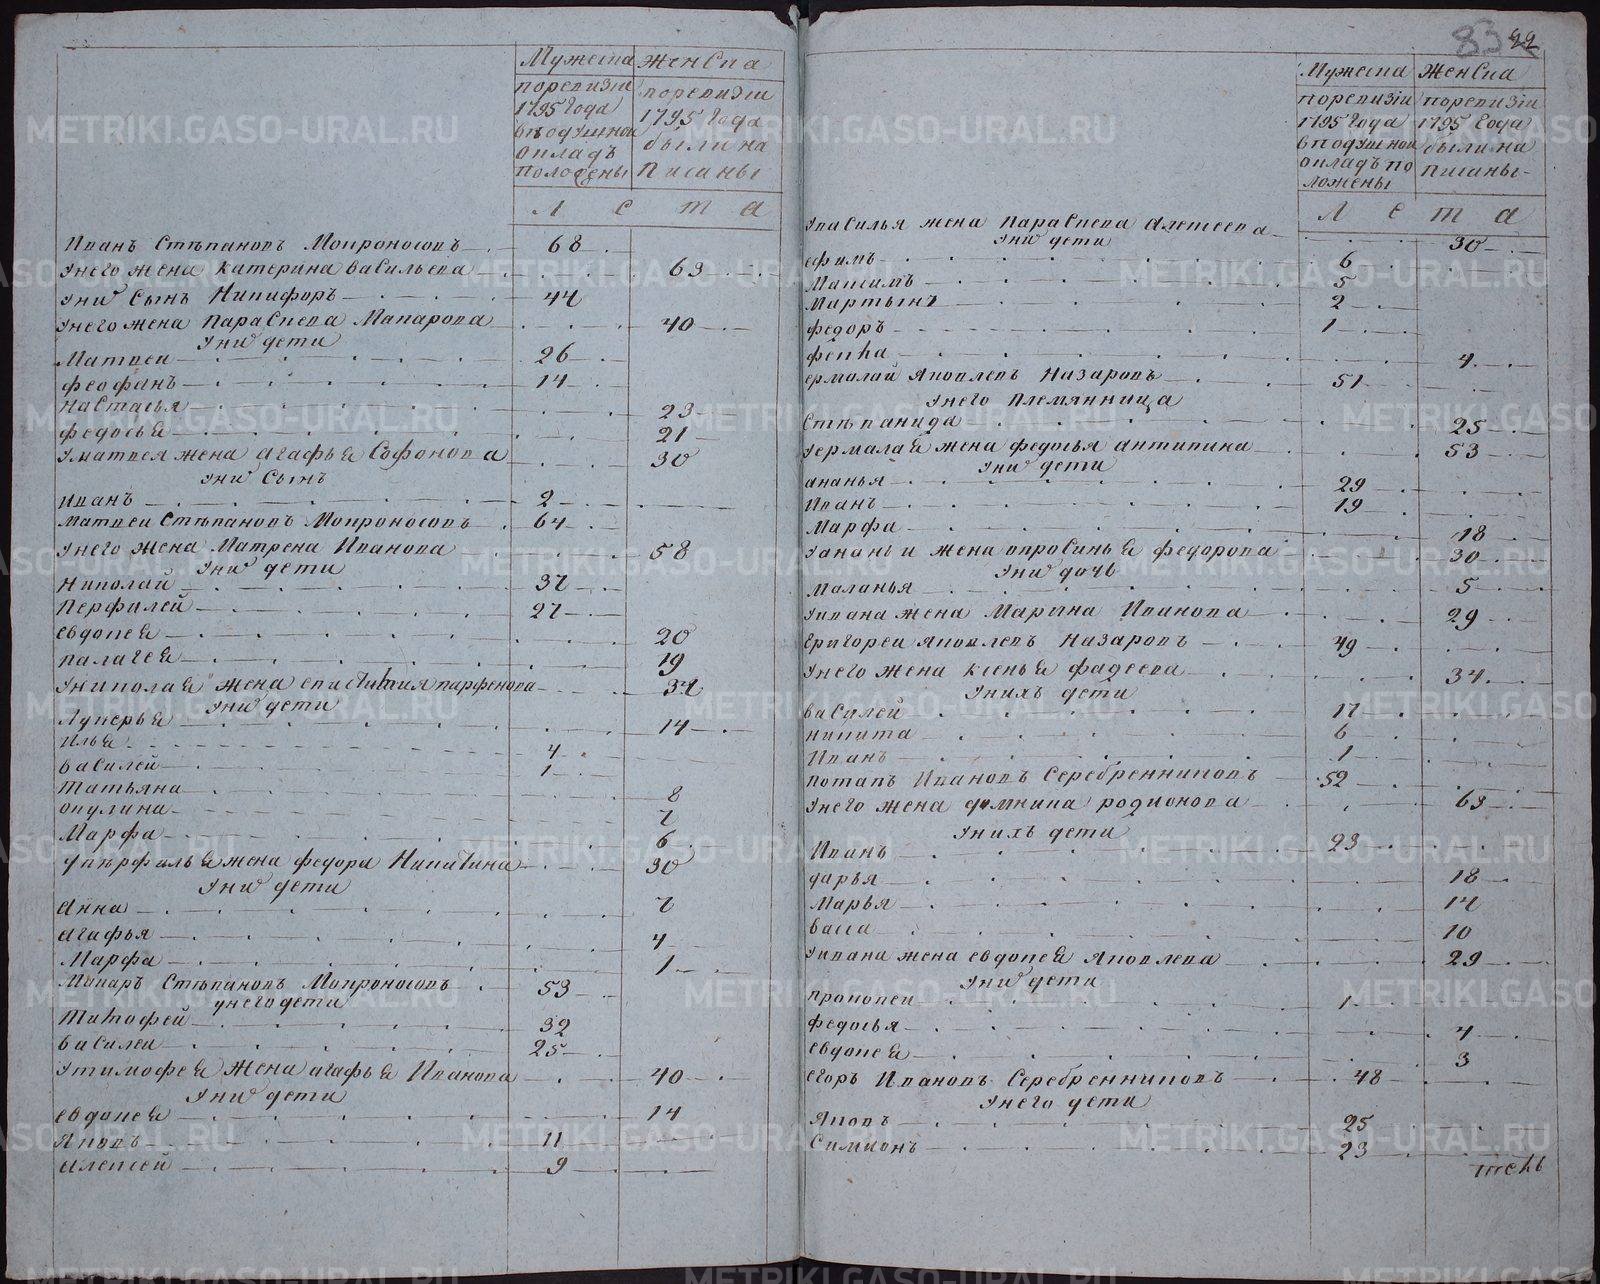 Мужеска Женска
поревизiи 1795 года въподушной окладъ положены
поревизiи 1795 года были написаны
Л е т а
Иванъ Стѣпановъ Мокроносовъ 68
Унего жена катерина васильева 63
Уних Сынъ Никифоръ 44
Унего жена Параскева Макарова 40
Уних дети
Матвеи 26
феофанъ 14
Настасья 23
федосья 21
Уматвея жена агафья Софонова 30
Уних Сынъ
Иванъ 2
Матвеи Стѣпановъ Мокроносовъ 64
Унего жена Матрена Иванова 58
Уних дети
Николай 37
Перфилей 27
евдокея 20
палагея 19
Униколая жена епистимия парфенова 37
Уних дети
Лукерья 14
Илья 4
василей 1
Татьяна 8
окулина 7
Марфа 6
Упѣрфилья жена федора Никитина 30
Уних дети
Анна 7
агафья 4
Марфа 1
Макаръ Стѣпановъ Мокроносовъ 53
унего дети
Тимофей 32
василеи 25
Утимофея жена агафья Иванова 40
Уних дети
евдокея 14
Яковъ 11
алексей 9
83 22
Мужеска Женска
поревизiи 1795 года вподушной окладъ положены
поревизiи 1795 года были написаны
Л е т а
Увасилья жена Параскева алексеева 30
Уних дети
ефимъ 6
Максимъ 5
Мартынъ 2
федоръ 1
фекла 4
ермалай Яковлевъ Назаровъ 51
Унего Племянница
Стѣпанида 25
Уермалая жена федосья антипина 53
Уних дети
ананья 29
Иванъ 19
Марфа 18
Уананьи жена опросинья федорова 30
Уних дочь
Маланья 5
Уивана жена Марина Иванова 29
Григореи Яковлевъ Назаровъ 49
Унего жена ксенья фадеева 34
Унихъ дети
василей 17
никита 6
Иванъ 1
потапъ Ивановъ Серебренниковъ 52
Унего жена домника родионова 63
Унихъ дети
Иванъ 23
дарья 18
Марья 14
васса 10
Уивана жена евдокея Яковлева 29
Уних дети
прокопеи 1
федосья 4
евдокея 3
егоръ Ивановъ Серебренниковъ 48
Унего дети
Яковъ 25
Симионъ 23
METRIKI.GASO-URAL.RU